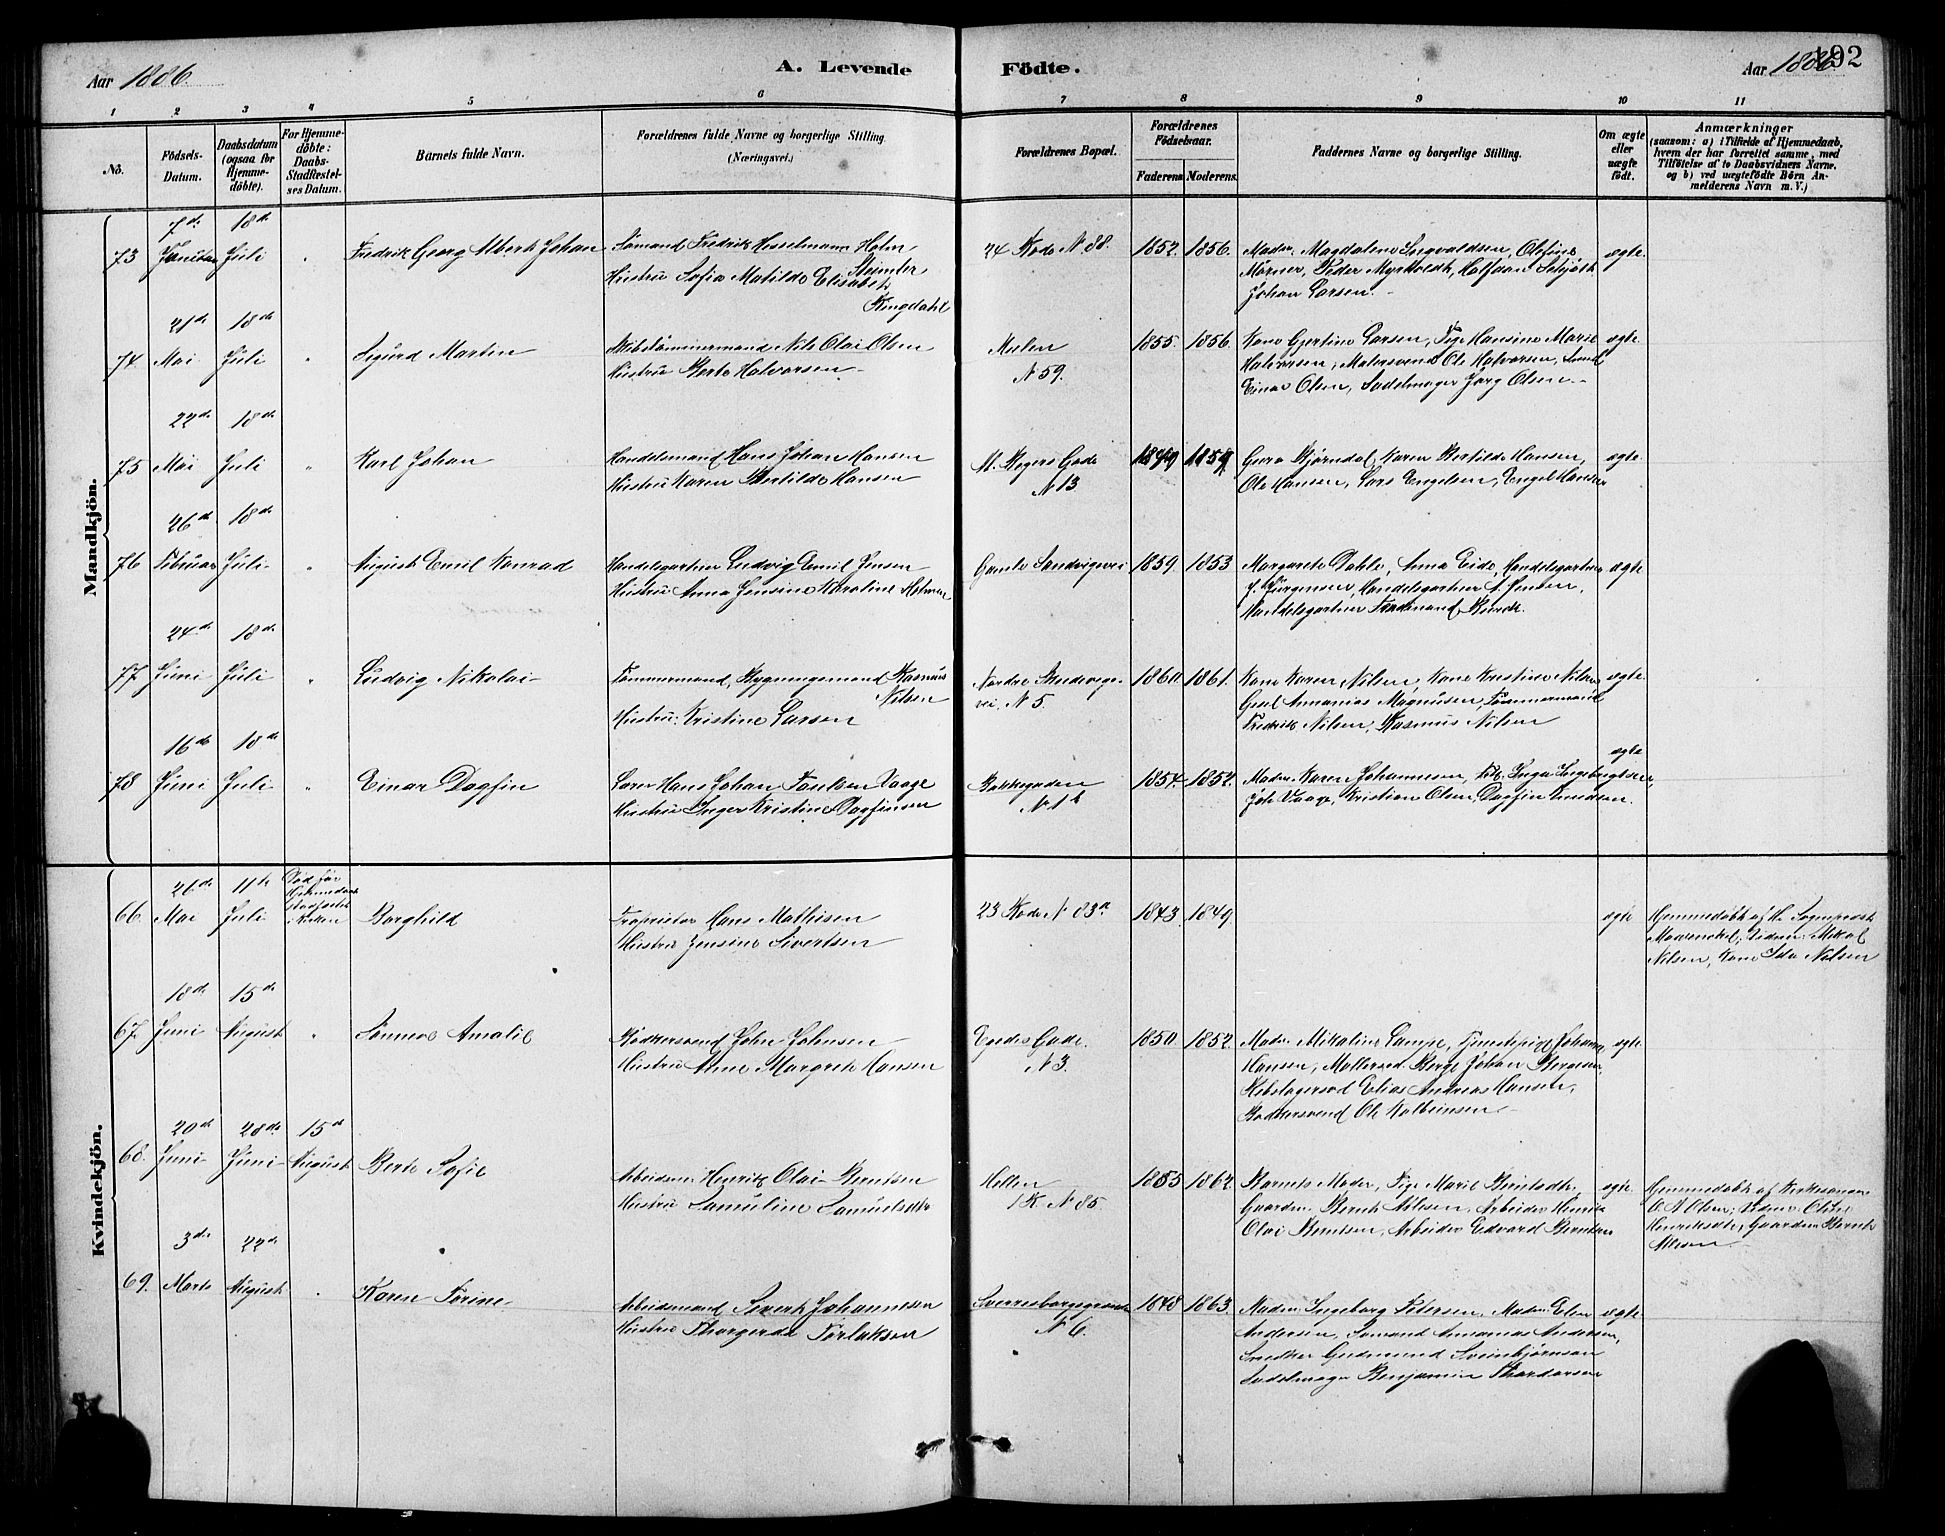 192
Aar 1886.
A. Levende Födte.
Aar 1886
1 2 3 4 5 6 7 8 9 10 11
No.
Födsels-Datum.
Daabsdatum (ogsaa for Hjemme-döbte).
For Hjemme-döbte: Daabs-Stadfæstel-ses Datum.
Barnets fulde Navn.
Forældrenes fulde Navne og borgerlige Stilling.
(Næringsvei.)
Forældrenes Bopæl.
Forældrenes Födselsaar.
Faderens Moderens
Faddernes Navne og borgerlige Stilling.
Om ægte eller uægte födt.
Anmærkninger
(saasom: a) i Tilfælde af Hjemmedaab,
hvem der har forrettet samme, med
Tilföielse af to Daabsvidners Navne.
og b) ved uægtefödte Börn An-
melderens Navn m. V.)
Mandkjön.
73 7de Januar 18de Juli " Fredrik Georg Albert Johan
Sömand Fredrik Hesselmann Holm
Steimler
Hustru Sofia Matilde Elisabeth
Ringdahl
24 Rode N 88. 1852. 1856.
Madm. Magdalene Ingvaldsen, Olefine
Mörner, Peder Myrholdt, Halfdan
Johan Larsen.
ægte
74 21de Mai 18de Juli " Sigurd Martin
Skibstömmermand Nils Olai Olsen
Hustru Berte Halvorsen
Mulen
N 59.
1855. 1856.
Kone Gjertine Larsen, Pige Hansine Marie
Halvorsen, Malersvend Ole Halvorsen,
Einar Olsen, Sadelmager Jörg Olsen
ægte
75 22de Mai 18de Juli " Karl Johan
Handelsmand Hans Johan Hansen
Hustru Karen Bertilde Hansen
M. Krogers Gade
N 13
1859
Guro Bjørndal, Karen Bertilde Hansen,
Ole Hansen, Lars Engelsen, Engel Hansen
ægte
76 26de Februar 18de Juli " August Emil Konrad
Handelsgartner Ludvig Emil Jensen
Hustru Anna Jensine Karoline Holmer
Gamle Sandvigsvei 1859. 1853
Margarete Dahle, Anna Eide, Handelsgartner
J. Jürgensen, Handelsgartner A. Jensen,
Handelsgartner Ferdinand
ægte
77 24de Juni 18de Juli " Ludvig Nikolai
Tömmermand, Bygningsmand Rasmus
Nilsen
Hustru: Kristine Larsen
Nordre Sandvigs-
vei. N 5.
1860. 1861.
Kone Karen Nilsen, Kone Kristine Nilsen
Gesel Annanias Magnusen, Tömmermand
Fredrik Nilsen, Rasmus Nilsen
ægte
78 16de Juni 18de Juli " Einar Dagfin
Lærer Hans Johan Paulsen Vaage
Hustru Inger Kristine Dagfinsen
Bakkegaden
N. 1b
1854. 1852.
Madm. Karen Johannesen, Frk. Inga Ingebrigtsen,
Joh. Vaage, Kristian Olsen, Dagfin Knudsen.
ægte
Kvindekjön.
66 26de Mai 11te Juli
Död før
Hjemmedaab
Stadfæstet
i Kirken
Borghild
Proprietær Hans Mathisen
Hustru Jensine Sivertsen
23 Rode N 83a 1843. 1849
ægte
Hjemmedöbt af Hr. Sognepræst
Vidner: Mikal
Nilsen, Kone Ida Nilsen
67. 18de Juni 15de August " Sönneve Amalie
Bödkersvend John Johnsen
Hustru Anne Margrete Hansen
Egedes Gade.
N 3.
1850. 1852.
Madm. Mikaline Lampe, Tjenestepige Johanne
Hansen, Møllersvd. Berge Johan Bergesen,
Rebslagersvd Elias Andreas Hansen,
Bödkersvend Ole Kolbeinsen
ægte
68. 20de Juni 28de Juni 15de August Berte Sofie
Arbeidsm. Henrik Olai Berntsen
Hustru Samuline Samuelsdtr
Hellen
1 R. N 85.
1855 1862.
Barnets Moder, Pige Marie Berntsdtr.
Gaardm. Bernt Nilsen, Arbeider Henrik
Olai Berntsen, Arbeider Edvard Berntsen
ægte
Hjemmedöbt af Kirkesanger
O. A. Olsen; Vidner: Oline
Henriksdtr, Gaardm Bernt
Nilsen
69. 3de Marts 22de August " Karen Torine
Arbeidsmand Sivert Johannesen
Hustru Thorgerda Torlaksen
Sverresborgsgaden
N 6.
1848 1863.
Madm. Ingeborg Petersen, Madm. Elen
Andersen, Sömand Annanias Andersen,
Snedker Gudmund Sveinbjörnson
Sadelmager Benjamin Thordarsen
ægte